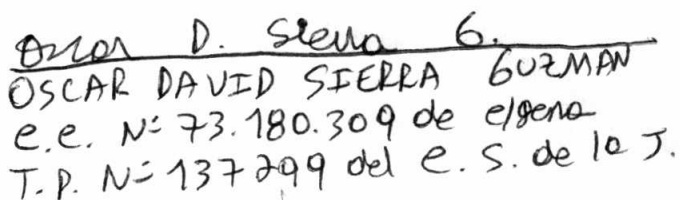 Oscar D. Sierra G.
OSCAR DAVID SIERRA GUZMAN
c.c. N: 73.180.309 de c/gena
T.P. N: 137299 del C.S. de la J.